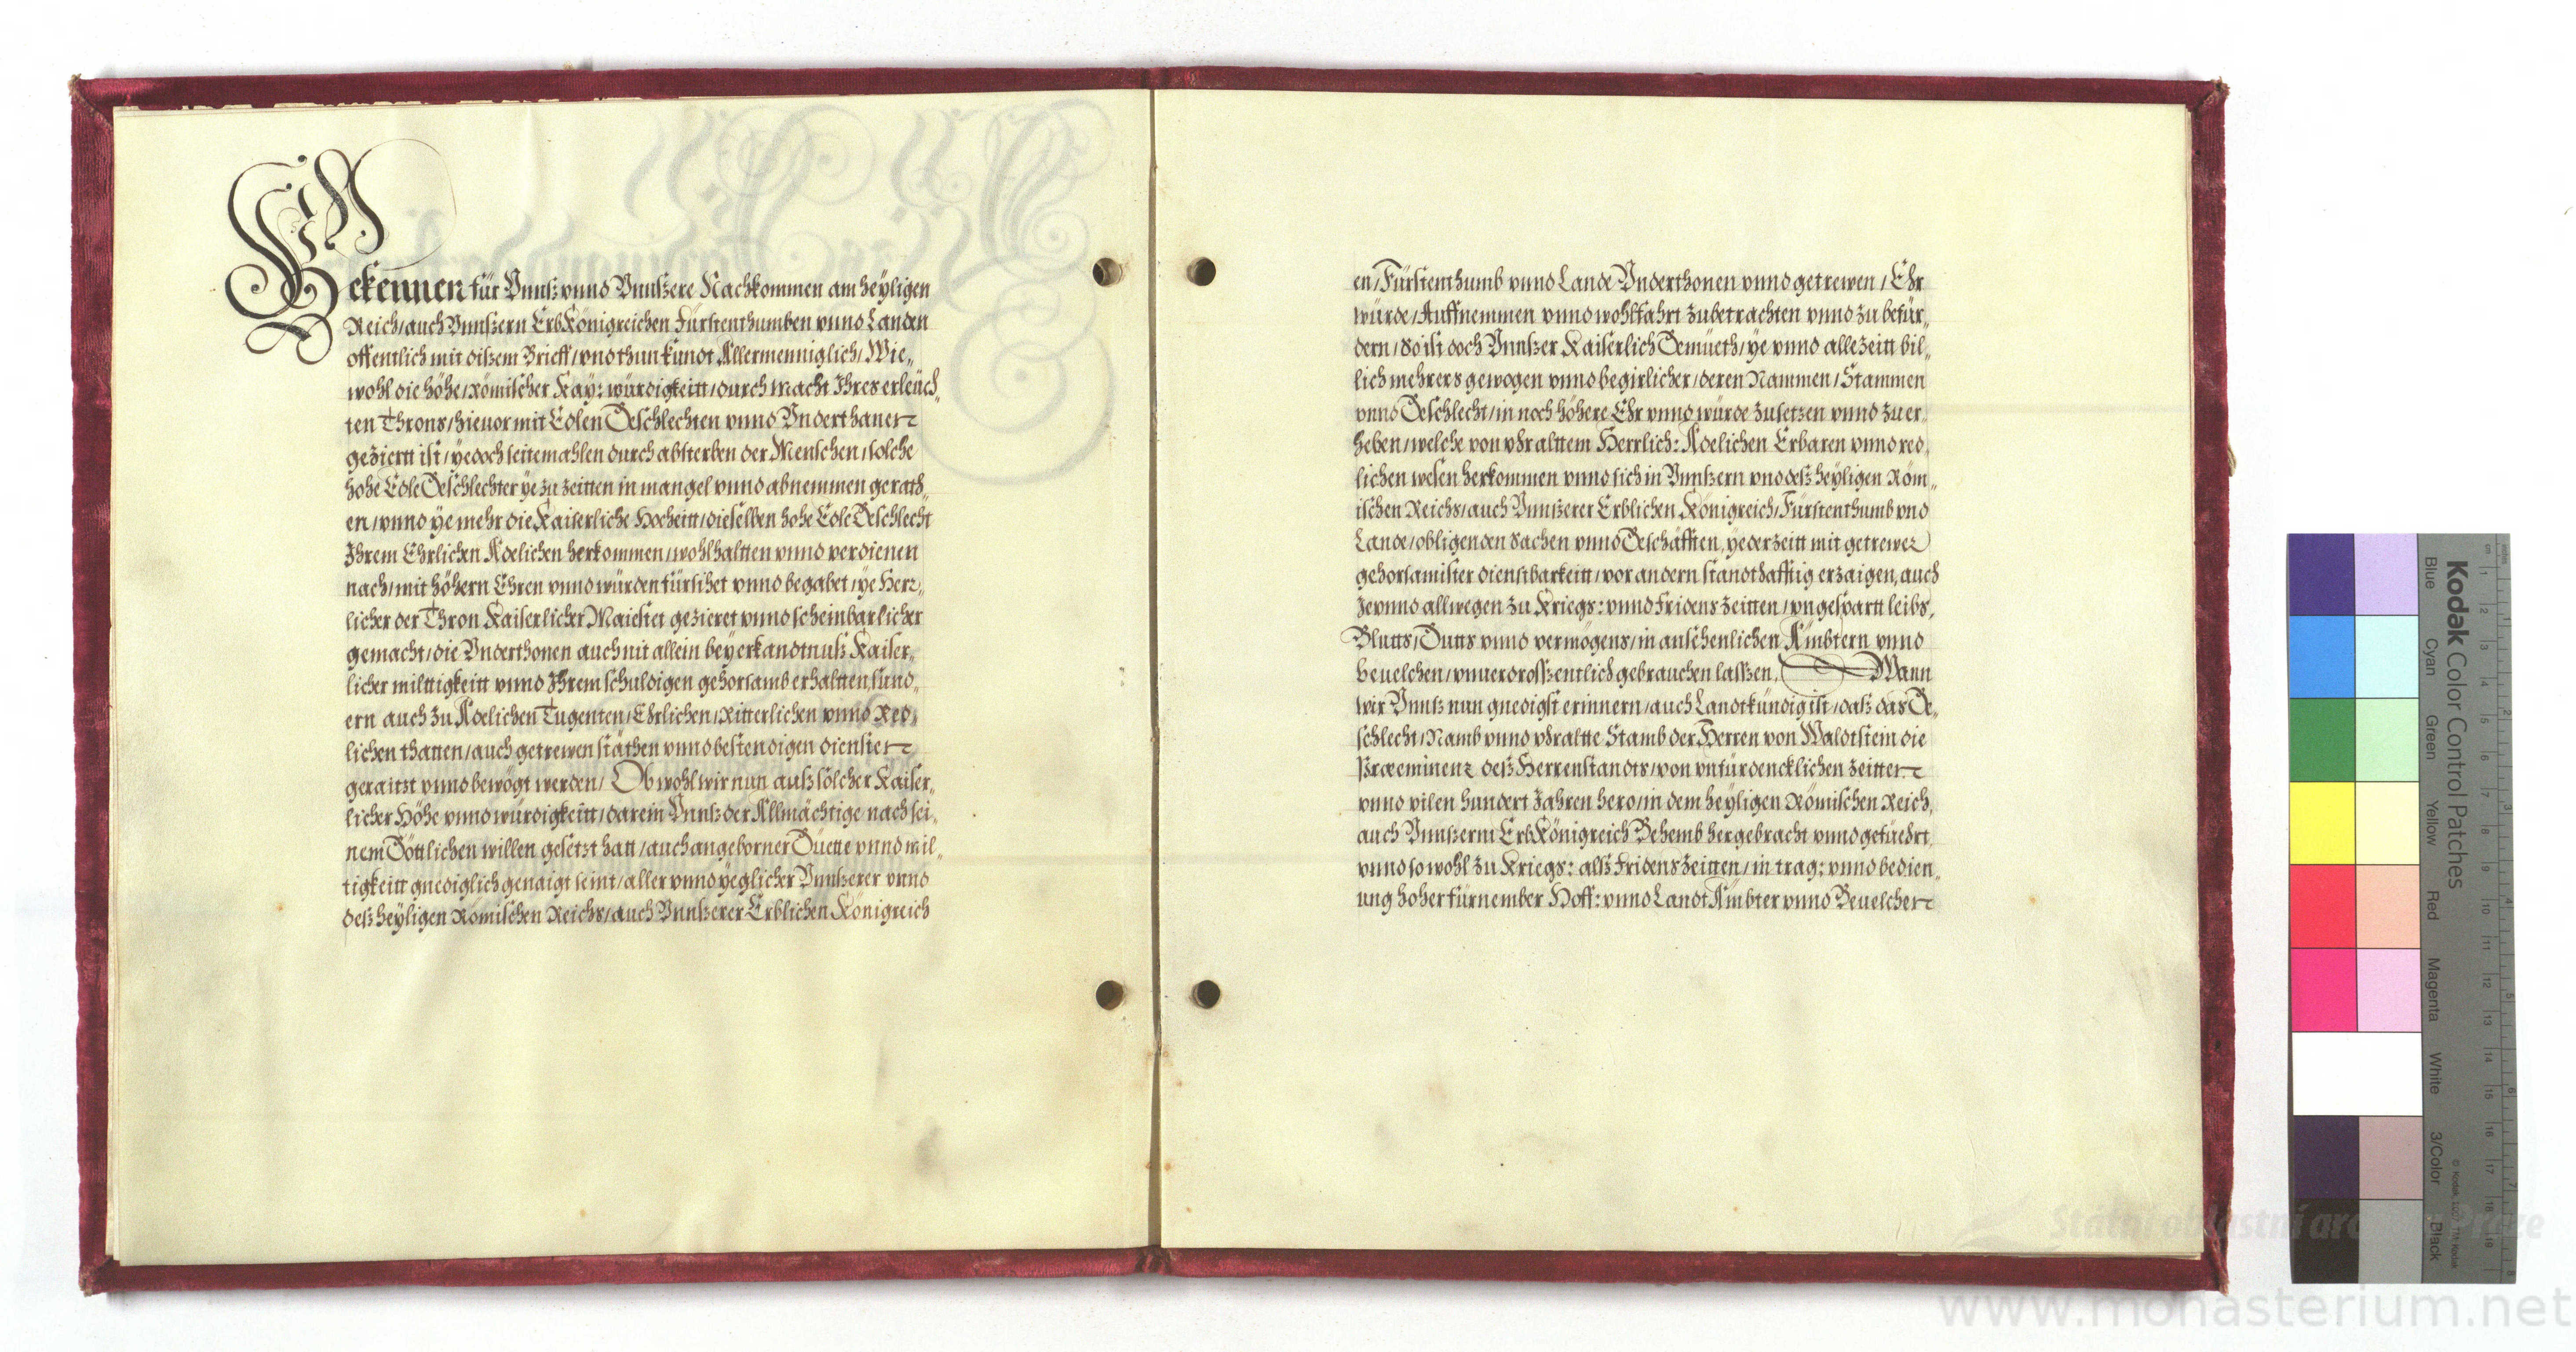 Bekennen für Vnnß vnnd Vnnßere Nachkommen am heyligen
Reich/auch Vnnßern ErbKönigreichen Fürstenthumben vnnd Landen
offentlich mit dißem Brieff/vnd thun kundt Allermenniglich/Wie„
wohl die höhe/römischer Kay: würdigkeitt/durch macht Ihres erleüch„
ten Throns/hieuor mit Edlen Geschlechten vnnd Vnderthanen
geziertt ist/yedoch seitemahlen durch absterben der Menschen/solche
hohe Edle Geschlechter ye zu zeitten in mangel vnnd abnemmen gerath„
en/vnnd ye mehr die Kaiserliche Hocheitt/dieselben hohe Edle Geschlecht
Ihrem Ehrlichen Adelichen herkommen/wohlhaltten vnnd verdienen
nach/mit höhern Ehren vnnd würden fürsihet vnnd begabet/ye Herr„
licher der Thron Kaiserlicher Maiestet gezieret vnnd scheinbarlicher
gemacht/die Vnderthonen auch nit allein bey erkandtnuß Kaiser„
licher milttigkeitt vnnd Ihrem schuldigen gehorsamb erhaltten, sund„
ern auch zu Adelichen Tugenten/Ehrlichen/Ritterlichen vnnd Red„
lichen thatten/auch getrewen stäthen vnnd bestendigen diensten
geraitzt vnnd bewögt werden/ Ob wohl wir nun auß sölcher Kaiser„
licher Höhe vnnd würdigkeitt/darein Vnnß der Allmächtige nach sei„
nem Göttlichen willen gesetzt hatt/auch angeborner Güette vnnd mil„
tigkeitt gnediglich genaigt seint/aller vnnd yeglicher Vnnßerer vnnd
deß heyligen Römischen Reichs/auch Vnnßerer Erblichen Königreich
en/Fürstenthumb vnnd Lande Vnderthonen vnnd getrewen/Ehr
würde/Auffnemmen vnnd wohlfahrt zubetrachten vnnd zu befür„
dern/So ist doch Vnnßer Kaiserlich Gemüeth/ye vnnd allezeitt bil„
lich mehrers gewogen vnnd begirlicher/deren Nammen/Stammen
vnnd Geschlecht/in noch höhere Ehr vnnd würde zusetzen vnnd zu er„
heben/welche von vhralttem Herrlich: Adelichen Erbaren vnnd red„
lichen wesen herkommen vnnd sich in Vnnßern vnd deß heyligen Röm„
ischen Reichs/auch Vnnßerer Erblichen Königreich/Fürstenthumb vnd
Lande/obligenden sachen vnnd Geschäfften, yederzeitt mit getrewer
gehorsamister dienstbarkeitt/vor andern standthafftig erzaigen, auch
Je vnnd allwegen zu Kriegs: vnnd fridens zeitten/vngespartt leibs,
Blutts/Gutts vnnd vermögens/in ansehenlichen Ämbtern vnnd
beuelchen/vnuerdrossentlich gebrauchen lassen. Wann
wir Vnnß nun gnedigst erinnern/auch Landtkündig ist/daß das Ge„
schlecht/Namb vnnd vhraltte Stamb der Herren von Waldtstein die
Præeminenz deß Herrenstandts/von vnfürdencklichen zeitten
vnnd vilen hundert Jahren hero/in dem heyligen Römischen Reich,
auch Vnnßerm ErbKönigreich Behemb hergebracht vnnd gefüehrt,
vnnd so wohl zu Kriegs: alß Fridens zeitten/in trag: vnnd bedien„
ung hoher fürnember Hoff: vnnd Landt Ämbter vnnd Beuelchen
Kodak Color Control Patches
Blue Cyan Green Yellow Red Magenta White 3/Color Black
www.monasterium.net